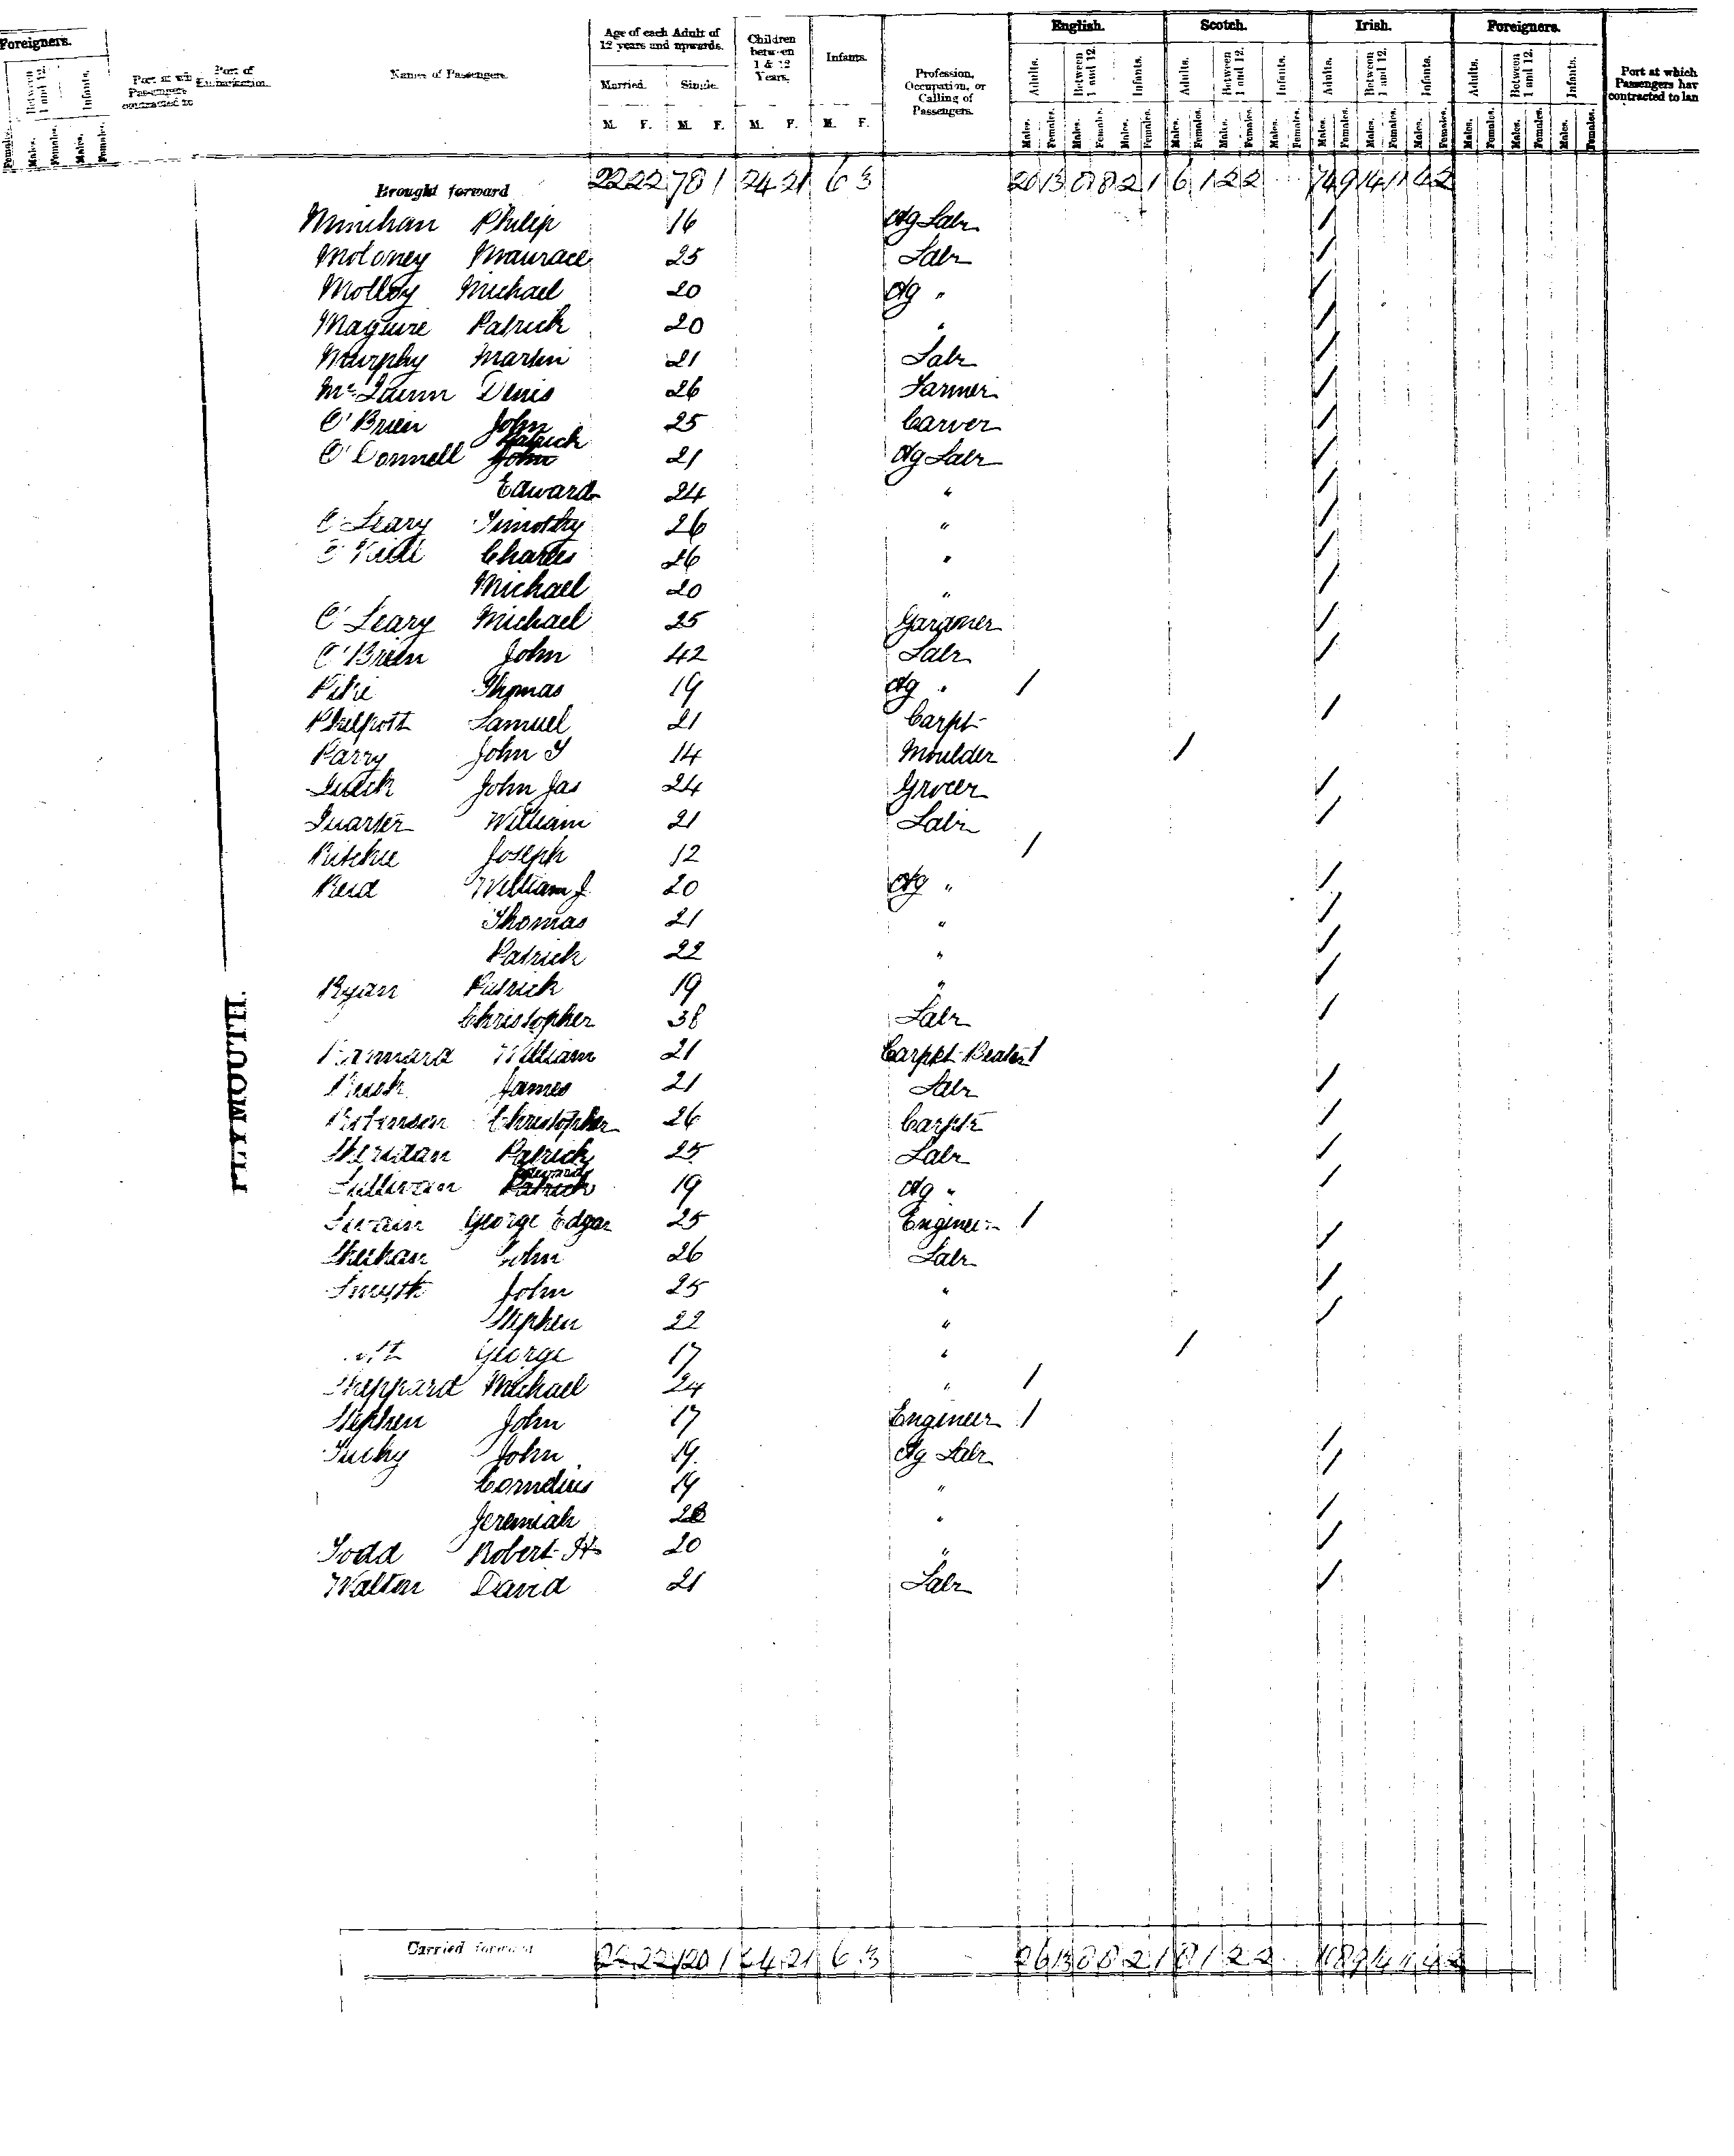 Foreigners.
Age of each Adult of 12 years and upwards.
Children between 1 & 12 Years.
Infants.
English.
Scotch.
Irish.
Foreigners.
Names of Passengers.
Married.
Single.
Profession, Occupation, or Calling of Passengers.
Port at which Passengers hav contracted to lan
Port of Embarkation.
Adults. Between 1 and 12. Infants. Adults. Between 1 and 12. Infants. Adults. Between 1 and 12. Infants. Adults. Between 1 and 12. Infants.
M. F. M. F. M. F. M. F.
Males. Females. Males. Females. Males. Females. Males. Females. Males. Females. Males. Females. Males. Females. Males. Females. Males. Females. Males. Females.
Brought forward 22 22 78 1 24 21 6 3 20 13 8 8 2 1 6 1 2 2 74 9 14 11 4 2
Minihan Philip 16 Ag Labr /
Moloney Maurace 25 Labr /
Molloy Michael 20 Ag " /
Maguire Patrick 20 " /
Murphy Martin 21 Labr /
McQuinn Denis 26 Farmer /
O'Brien John 25 Carver /
O'Connell Patrick 21 Ag Labr /
Edward 24 " /
O'Leary Timothy 26 " /
O'Neill Charles 26 " /
Michael 20 " /
O'Leary Michael 25 Gardner /
O'Brien John 42 Labr /
Pike Thomas 19 Ag " /
Philpott Samuel 21 Carpt /
Parry John 14 Moulder /
Quick John Jas 24 Grocer /
Quarter William 21 Labr /
Ritchie Joseph 12 /
Reid William J. 20 Ag " /
Thomas 21 " /
Patrick 22 " /
Ryan Patrick 19 " /
Christopher 38 Labr /
William 21 Carpet Beater /
James 21 Labr /
Robinson Christopher 26 Carptr /
Sheridan Patrick 25 Labr /
Sullivan Edward 19 Ag " /
Swain George Edgar 25 Engineer /
Sheehan John 26 Labr /
Smyth John 25 " /
Stephen 22 " /
George 17 " /
Sheppard Michael 24 " /
Stephen John 17 Engineer /
Tuohy John 19 Ag Labr /
Cornelius 19 " /
Jeremiah " /
Todd Robert H 20 " /
Walton David 21 Labr /
PLYMOUTH.
Carried forward 22 22 120 1 24 21 6 3 26 13 8 8 2 1 8 1 2 2